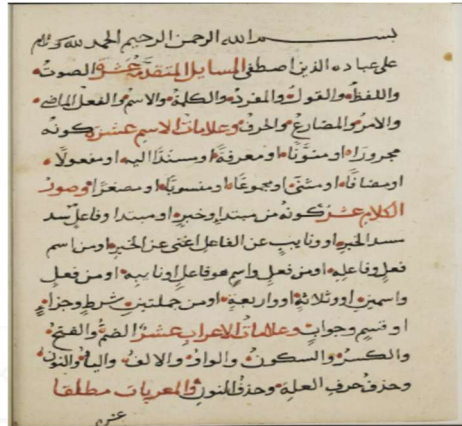 بسم الله الرحمن الرحيم الحمد لله وسلام
على عباده الذين اصطفى المسايل المتقدمة عشرة الصوت
واللفظ والقول والمفرد والكلمة والاسم والفعل الماضي
والامر والمضارع والحرف وعلامات الاسم عشرة كونه
مجرورا او منونا او معرفة او مسندا اليه او مفعولا
او مضافا او مثنى او مجموعا او منسوبا او مصغرا وصور
الكلام عشر كونه من مبتدا وخبر او مبتدا وفاعل سد
مسد الخبر او ونايب عن الفاعل اغنى عن الخبر او من اسم
فعل وفاعله او من فعل واسم هو فاعل او نايبه او من فعل
واسمين او وثلاثة او واربعة او من جملتين شرط وجزاء
او قسم وجواب وعلامات الاعراب عشر الضم والفتح
والكسر والسكون والواو والالف والياء والنون
وحذف حرف العلة وحذف النون والمعربات مطلقا
عشر